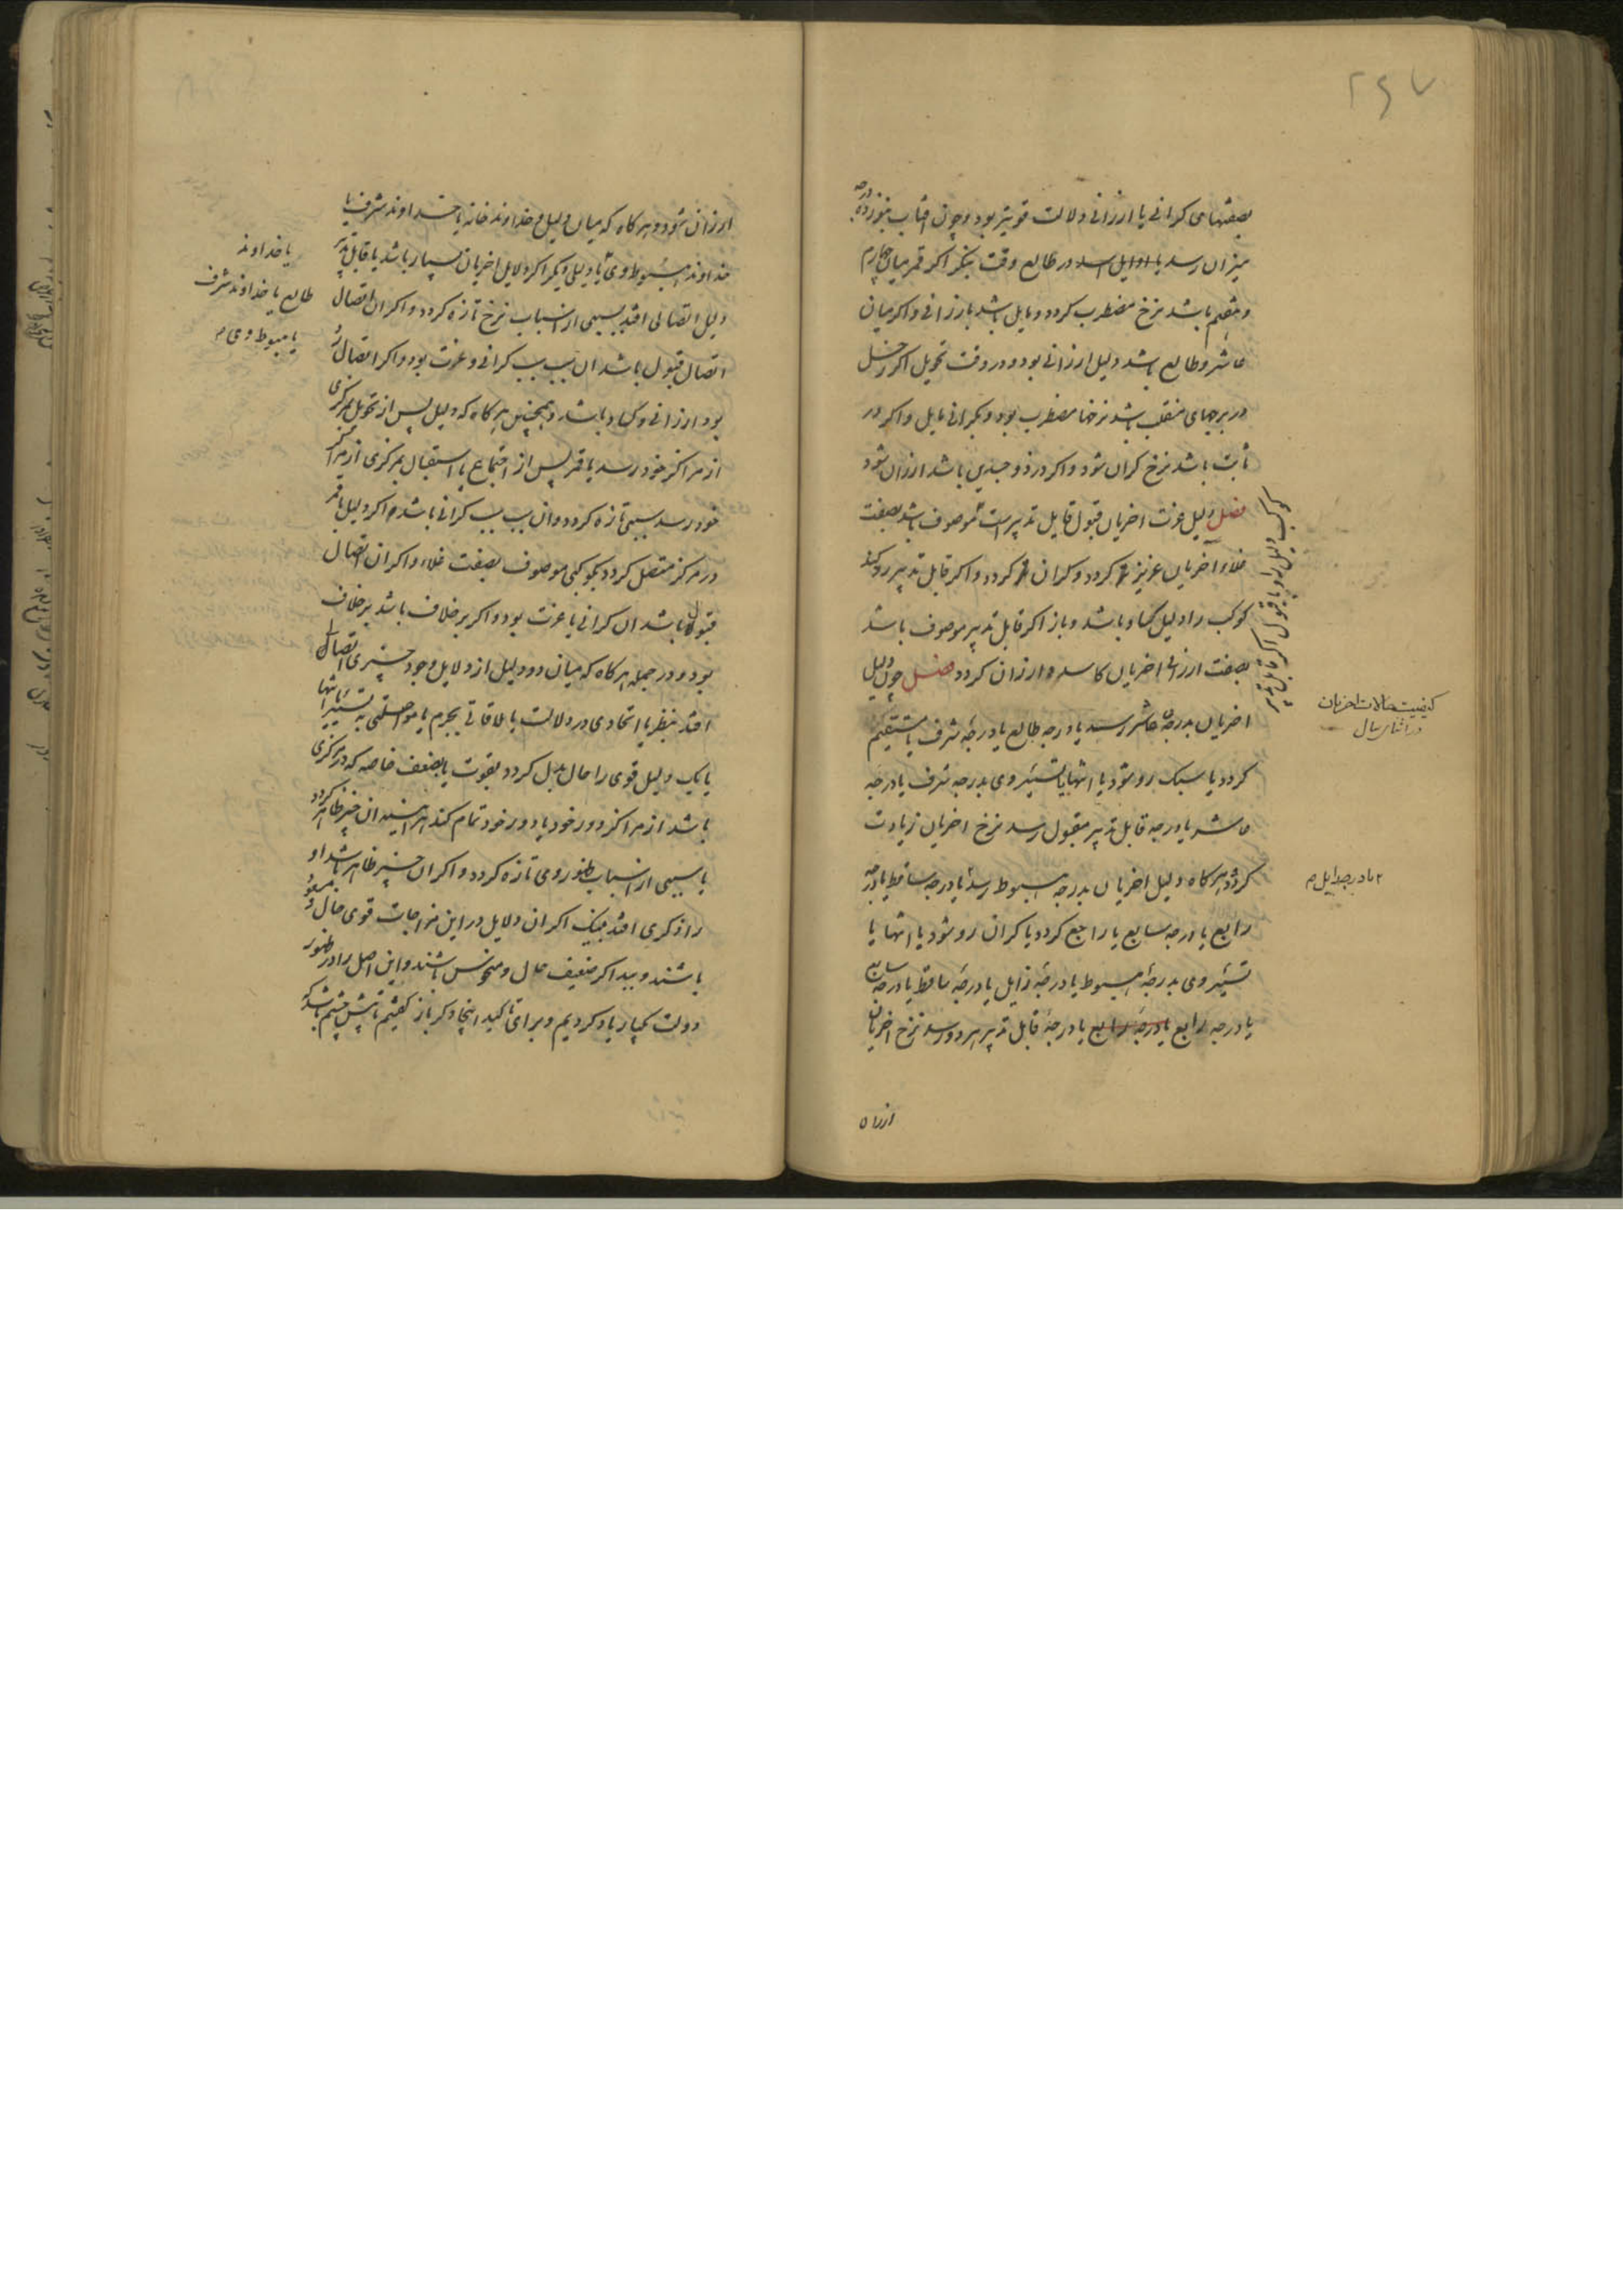 ۲۶۷
بصفتهای کرانی یا ارزانی دلالت قویتر بود و چون افتاب بنوزده درجه
میزان رسد یا اوایل اسد در طالع وقت بنکر اکر قمر میان چهارم
و هفتم باشد نرخ مضطرب کردد و مایل باشد بارزانی و اکر میان
عاشر و طالع باشد دلیل ارزانی بود و در وقت تحویل اکر زحل
در برجهای منقلب باشد نرخها مضطرب بود و بکرانی مایل و اکر در
ثابت باشد نرخ کران شود و اکر در ذو جسدین باشد ارزان شود
فصل دلیل عزت اخریان قبول قابل تدبیرست موصوف باشد بصفت
غلاء اخریان عزیز کردد و کران کردد و اکر قابل تدبیر رد کند
کوکب را دلیل کساد باشد و باز اکر قابل تدبیر موصوف باشد
بصفت ارزانی اخریان کاسد و ارزان کردد فصل چون دلیل
اخریان بدرجه عاشر رسد یا درجه طالع یا درجه شرف یا مستقیم
کردد یا سبک رو شود یا انتها یا تسییر وی بدرجه شرف یا درجه
عاشر یا درجه قابل تدبیر مقبول رسد نرخ اخریان زیادت
کردد و هرکاه دلیل اخریان بدرجه هبوط رسد یا درجه ساقط یا درجه
رابع یا درجه سابع یا راجع کردد یا کران رو شود یا انتها یا
تسییر وی بدرجه هبوط یا درجه زایل یا درجه ساقط یا درجه سابع
یا درجه رابع یا درجه رابع یا درجه قابل تدبیر مردود رسد نرخ اخریان
ارزان
کوکب دلیل را و با قبول اکر قابل تدبیر
کیفیت حالات اخریان
در اثنای سال
ارزان شود و هرکاه که میان دلیل و خداوند خانه یا خداوند شرف یا
خداوند هبوط وی یا دلیلی دیکر اکر دلایل اخریان بسیار باشد یا قابل تدبیر
دلیل اتصالی افتد سببی از اسباب نرخ تازه کردد و اکر ان اتصال
اتصال قبول باشد ان سبب سبب کرانی و عزت بود و اکر اتصال رد
بود ارزانی و کساد باشد و همچنین هرکاه که دلیل پس از تحویل بمرکزی
از مراکز خود رسد یا قمر پس از اجتماع یا استقبال بمرکزی از مراکز
خود رسد سببی تازه کردد و ان سبب سبب کرانی باشد اکر دلیل یا قمر
در مرکز متصل کردد بکوکبی موصوف بصفت غلاء و اکر ان اتصال
قبول باشد ان کرانی با عزت بود و اکر برخلاف باشد برخلاف
بود و در جمله هرکاه که میان دو دلیل از دلایل وجود چیزی اتصال
افتد بنظر یا اتحادی در دلالت یا ملاقاتی بجرم یا مواصلتی به تسییر یا انتها
یا یک دلیل قوی را حال بدل کردد بقوت یا بضعف خاصه که در مرکزی
باشد از مراکز دور خود یا دور خود تمام کند هر اینه ان چیز ظاهر کردد
یا سببی از اسباب ظهور وی تازه کردد و اکر ان چیز ظاهر باشد او
را ذکری افتد بنیک اکر ان دلایل در این مزاجات قوی حال و مسعود
باشند و ببد اکر ضعیف حال و منحوس باشند و این اصل را در ظهور
دولت یکبار یاد کردیم و برای تاکید اینجا دکر باز کفتیم تا پیش چشم باشد که
یا خداوند
طالع یا خداوند شرف
یا هبوط وی م